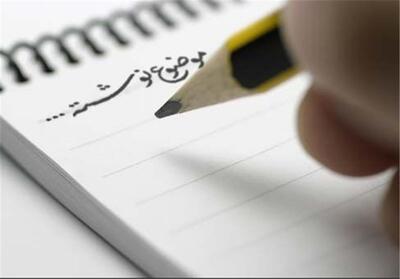 موضوع نوشته ...